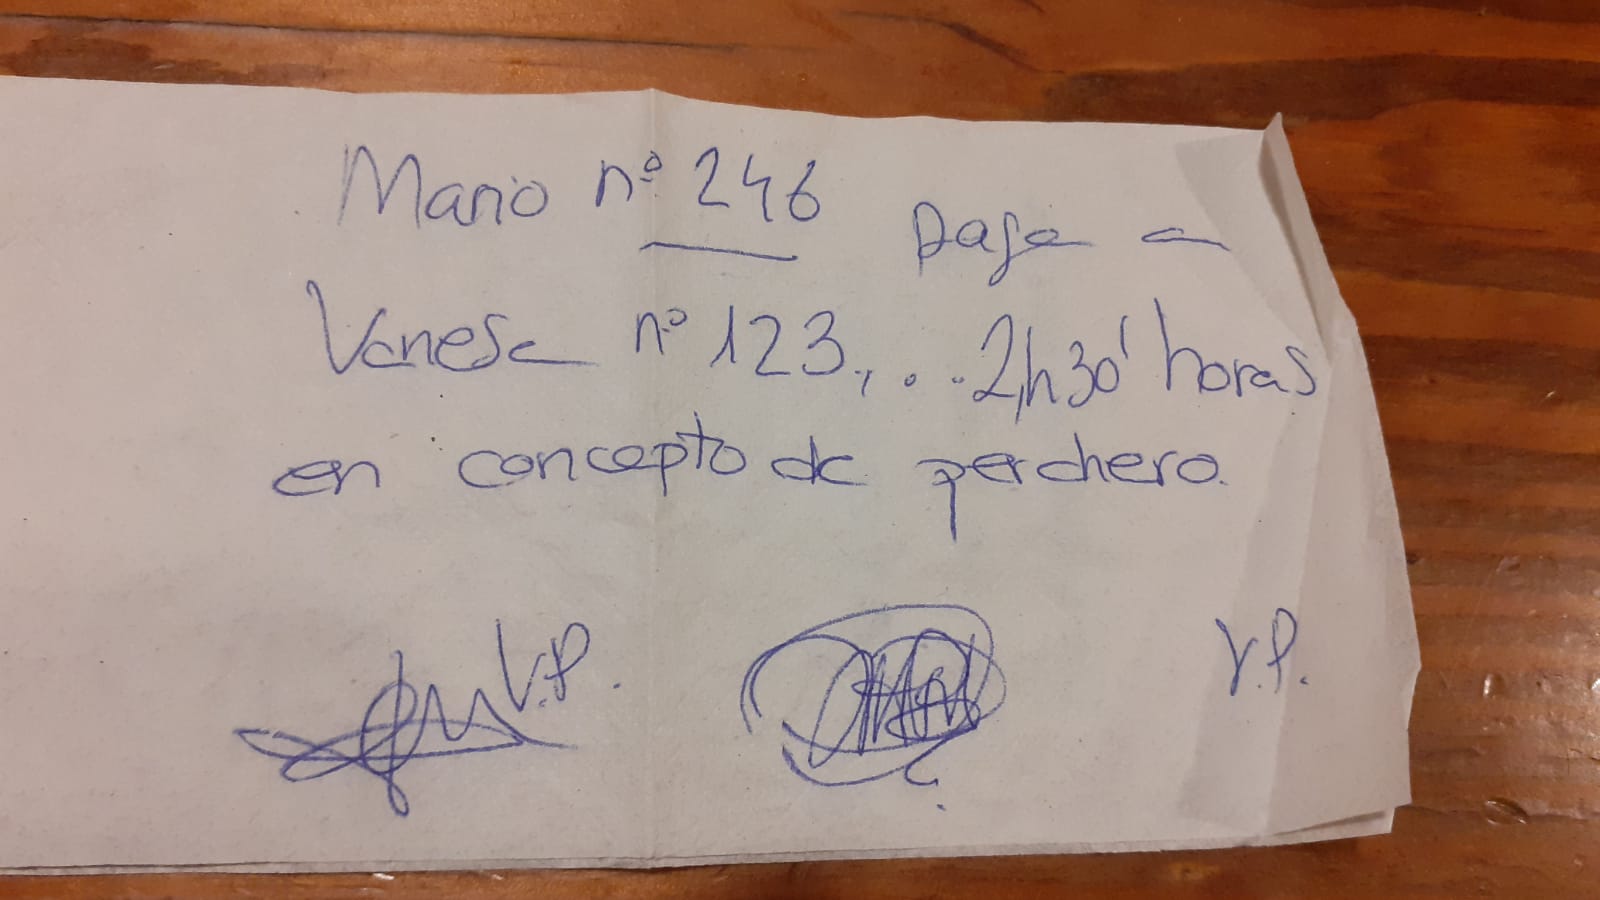 Mario nº 246 paga a
Vanesa nº 123,... 2,h30' horas
en concepto de perchero.
V.P. V.P.